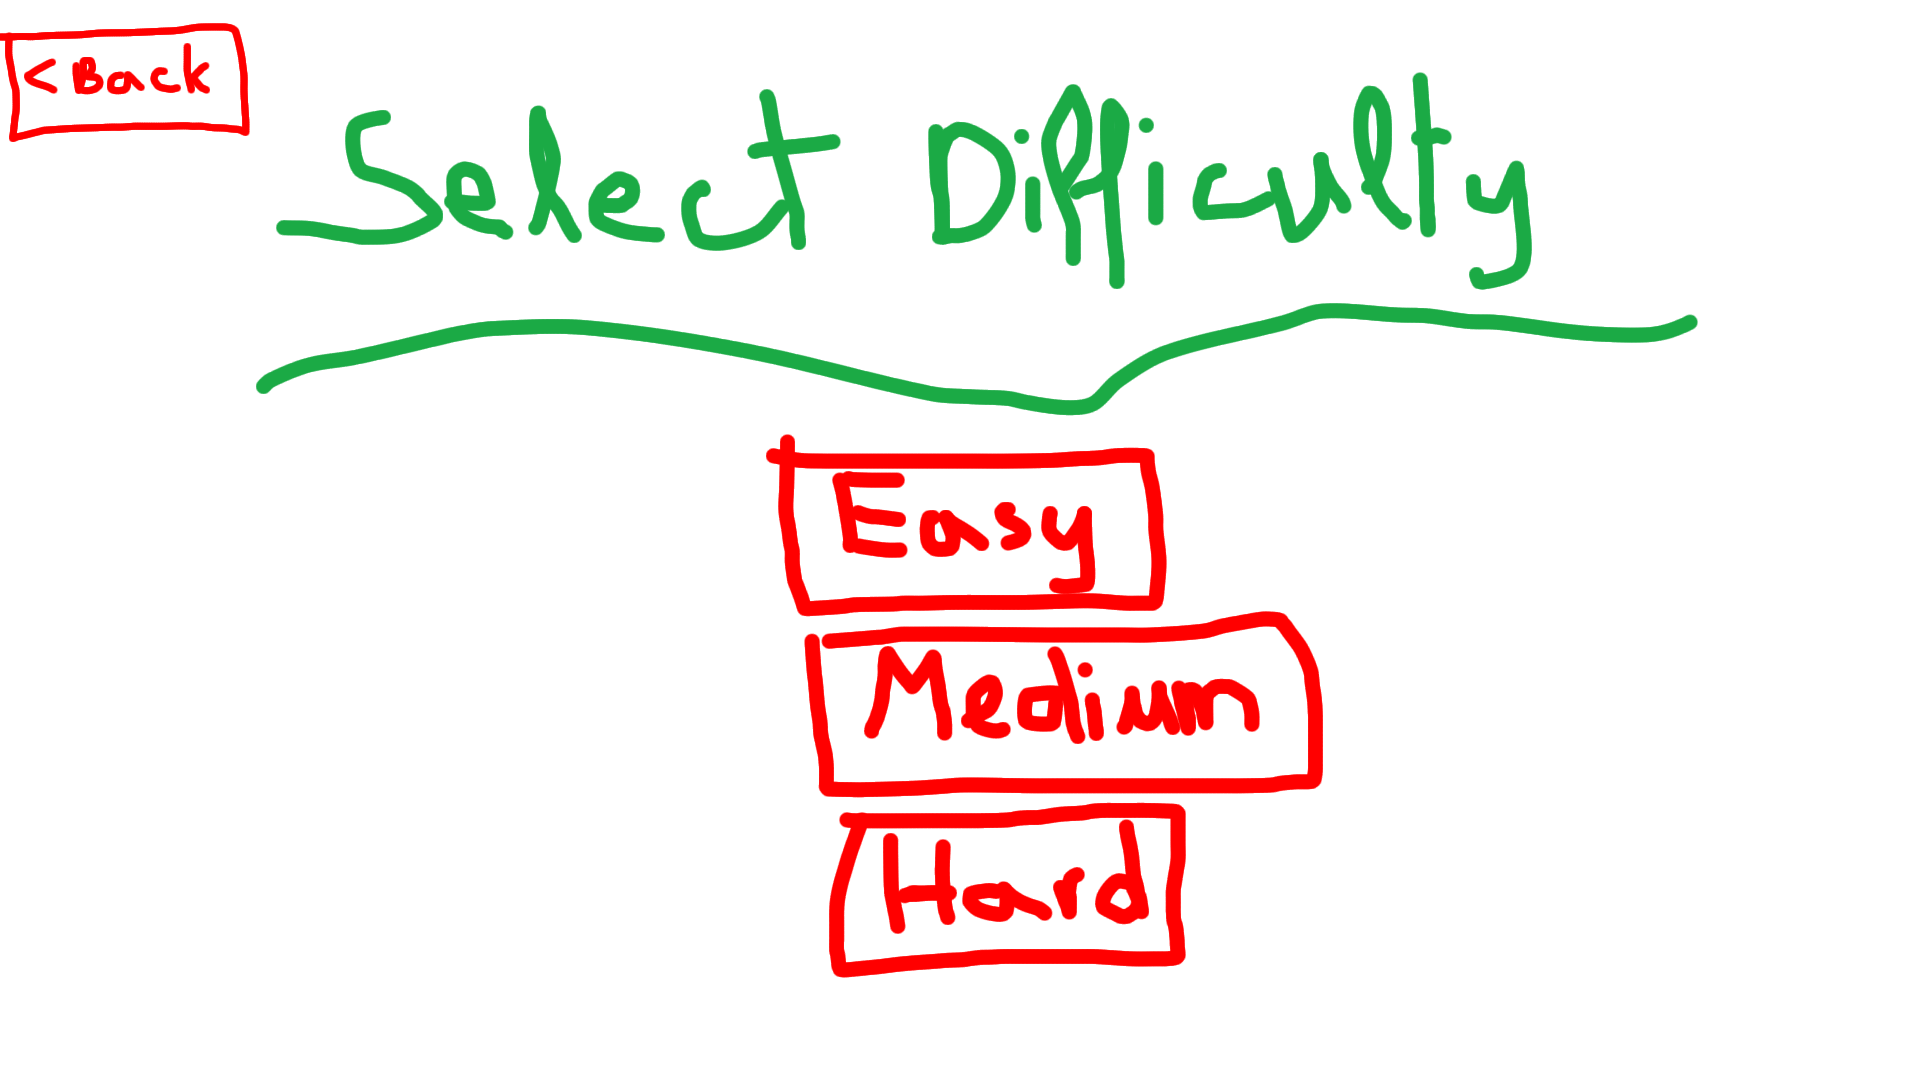 < Back
Select Difficulty
Easy
Medium
Hard